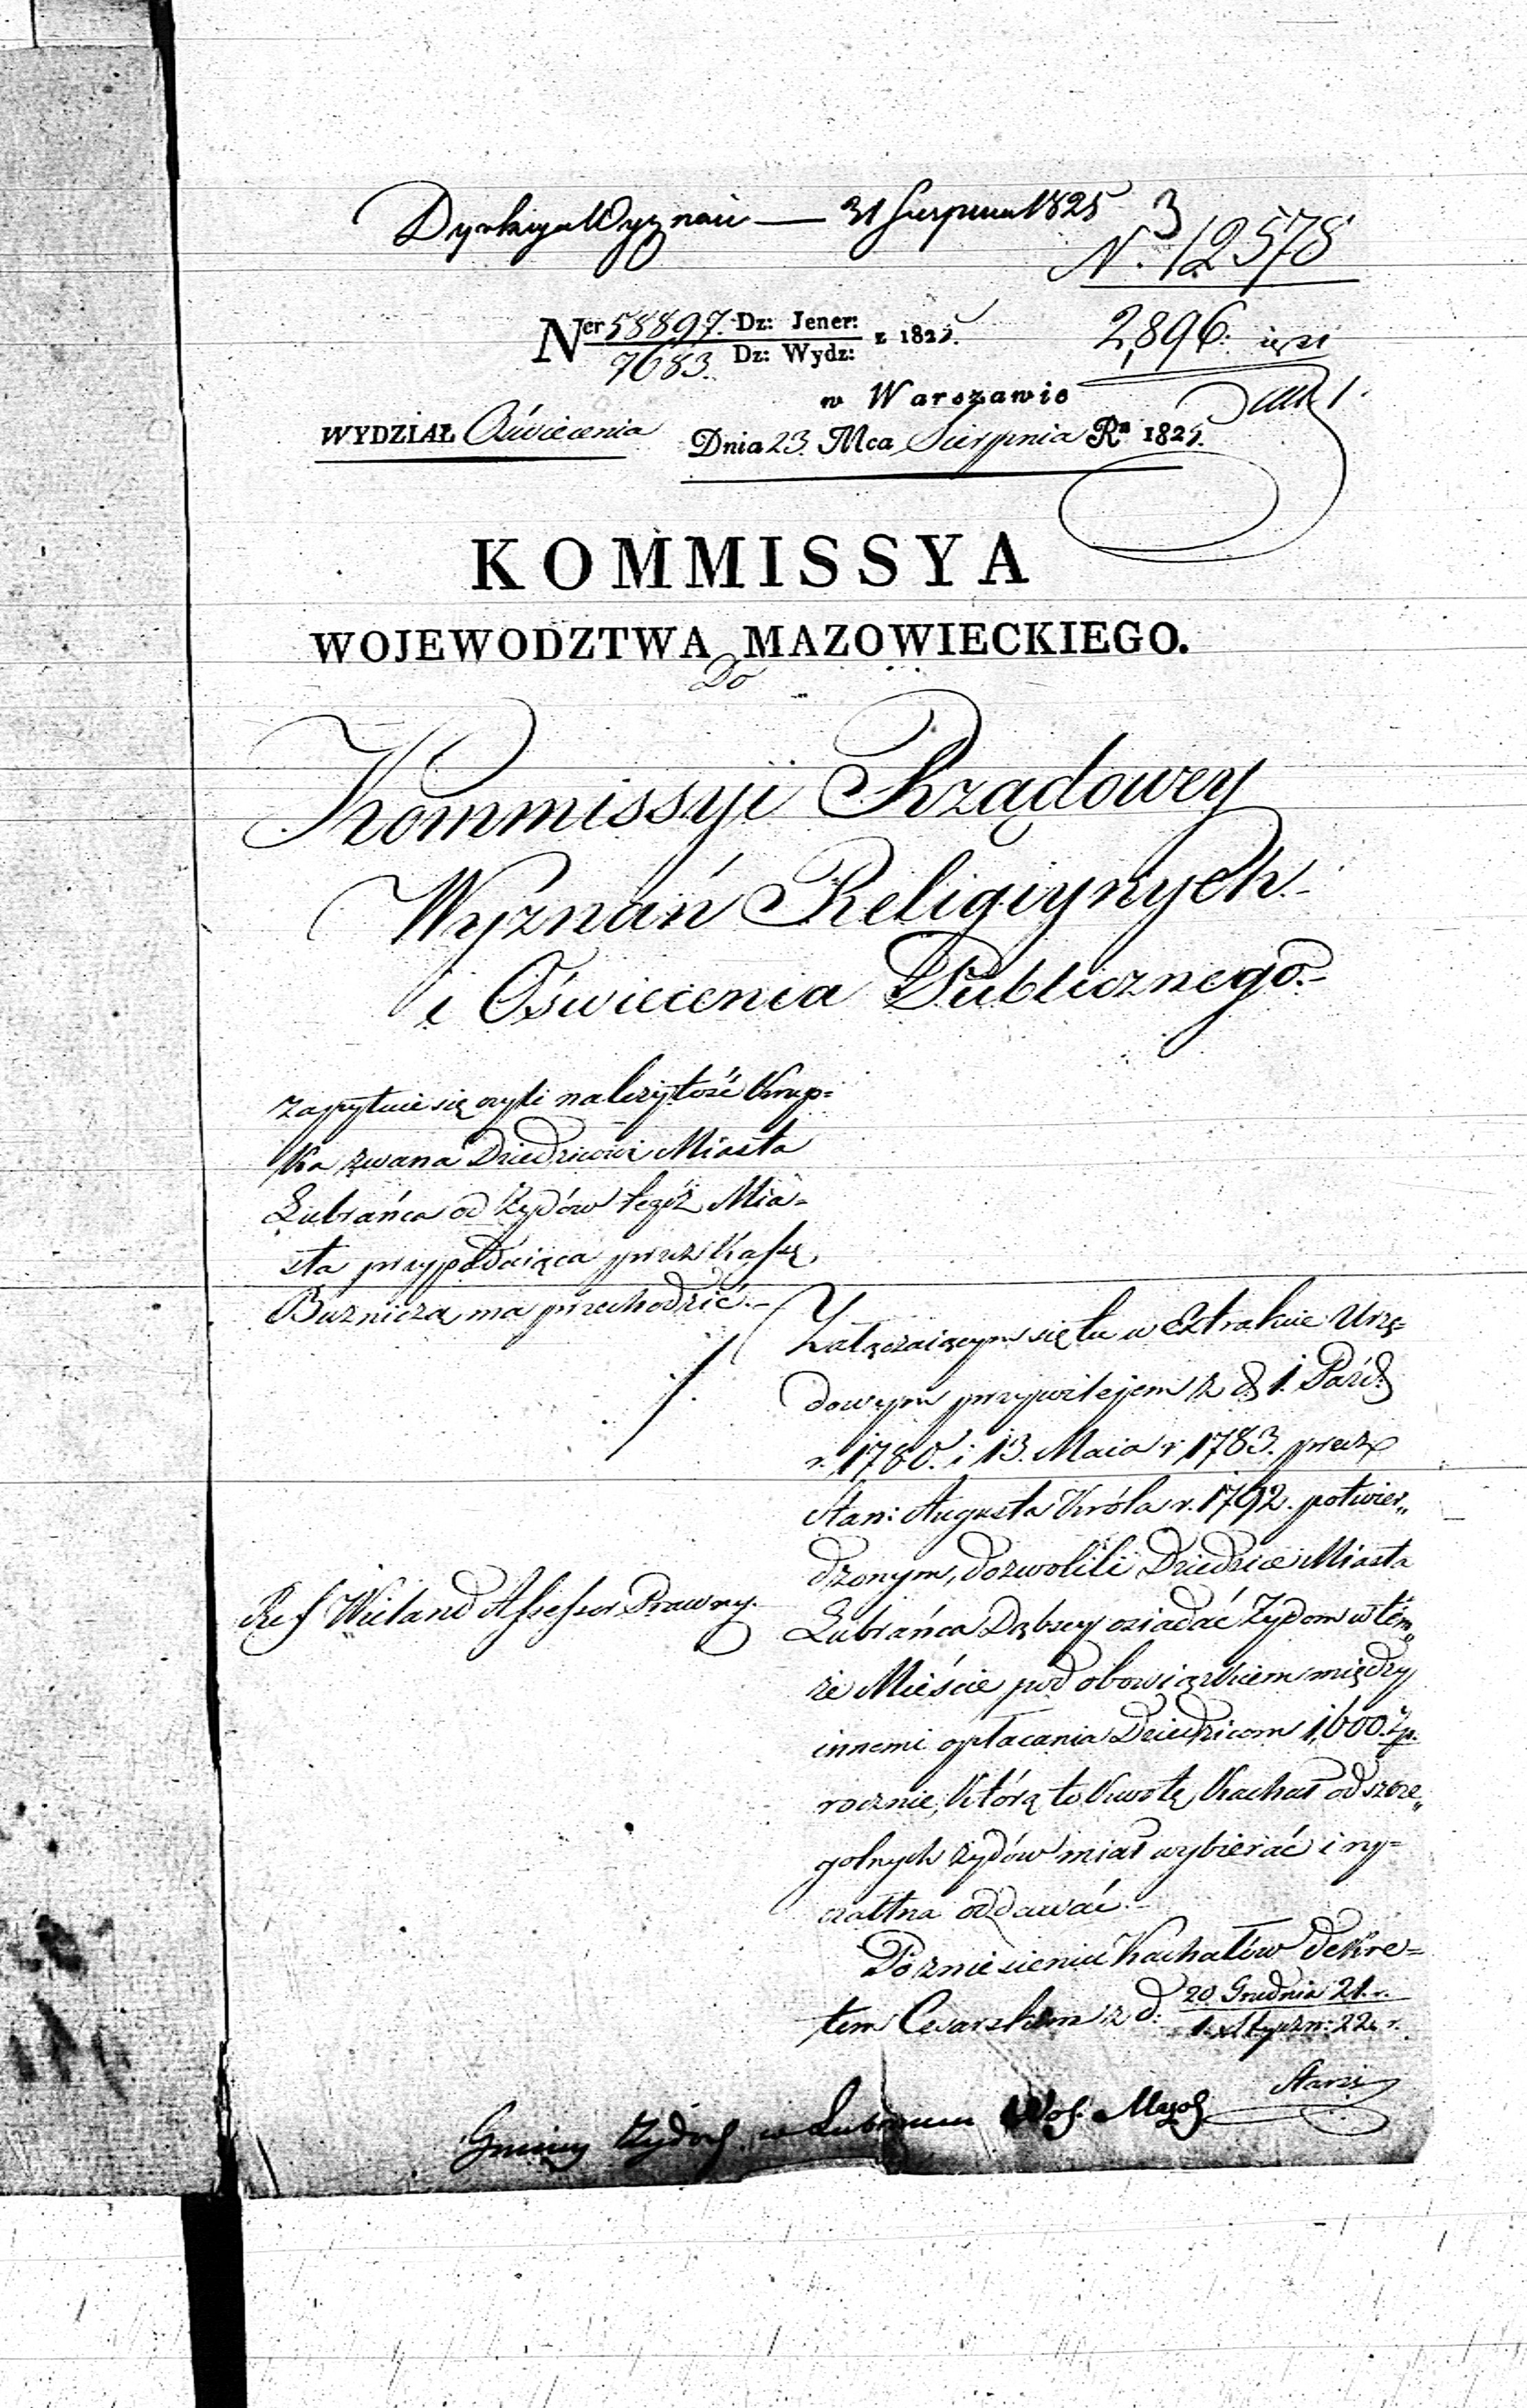 Dyrekcya Wyznań — 31 Sierpnia 1825
3
N. 12578
2,896.
Ner 58897. Dz: Jener: z 1825.
7683. Dz: Wydz:
w Warszawie
WYDZIAŁ Oświecenia Dnia 23. Mca Sierpnia Ra 1825.
KOMMISSYA
WOJEWODZTWA MAZOWIECKIEGO.
Do
Kommissyi Rządowey
Wyznań Religiynych
i Oświecenia Publicznego.
zapytuie się czyli należytość Krup=
ka zwana Dziedzicowi Miasta
Lubrańca od Żydów tegoż Mia=
sta przypadaiąca przez Kassę
Bużniczą ma przechodzić.
Załączaiącym się tu w Extrakcie Urzę=
dowym przywilejem z d. 1. Paźd.
r. 1780. i 13. Maia r. 1783. przez
Stan: Augusta Króla r. 1792. potwier„
dzonym, dozwolili Dziedzice Miasta
Lubrańca Dąbscy osiadać Żydom w tém„
że Mieście pod obowiązkiem między
innemi opłacania Dziedzicom 1,600. Zp.
rocznie, którą to kwotę Kachał od szcze„
golnych żydów miał wybierać i ry=
czałtna oddawać.
Po zniesieniu Kachałów dekre=
tem Cesarskim z d. 20. Grudnia 21. r.
1. Styczn: 22. r.
Ref Wieland Assessor Prawny.
Gminy Żydow. w Woj. Mazow.